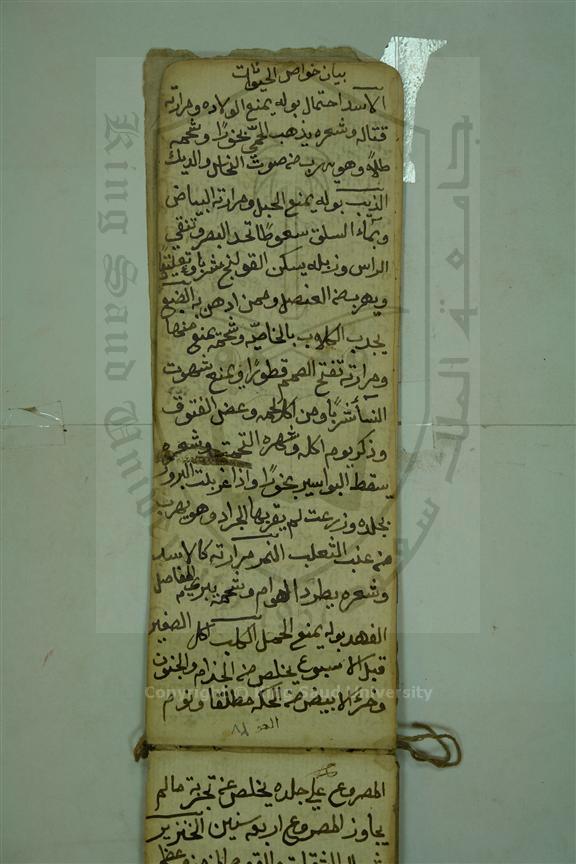 بيان خواص الحيوانات
الاسد احتمال بوله يمنع الولاده ومرارته
قتاله وشعره يذهب الحمى بخورا وشحمه
طلاءً وهو يهرب من صوت النحاس والديك
الذيب بوله يمنع الحبل ومرارته البياض
وبماء السلق سعوطا تحد البصر وتنقي
الراس وزبله يسكن القولنج شربا وتعليقا
ويهرب من العنصل وممن ادهن به الضبع
يجذب الكلاب بالخاصه وشحمه يمنع
ومرارته تفتح الصمم قطورا ويمنع شهوت
النسا شربا ومن اكل لحمه وعض
وذكر يوم اكله وشهره وشعره
يسقط البواسير بخورا واذا غربلت البزور
بجلده وزرعت لم يقربها الجراد وهو يهرب
من عنب الثعلب النمر مرارته كالاسد
وشعره يطرد الهوام وشحمه يبري المفاصل
الفهد بوله يمنع الحمل الكلب اكل الصغير
قبل الاسبوع يخلص من الجذام والجنون
وخرء الابيض من الحكه مطلقا ونوم
المصروع علي جلده يخلص عن تجربة مالم
يجاوز المصروع اربع سنين الخنزير
Copyright © King Saud University
King Saud University
جامعة الملك سعود